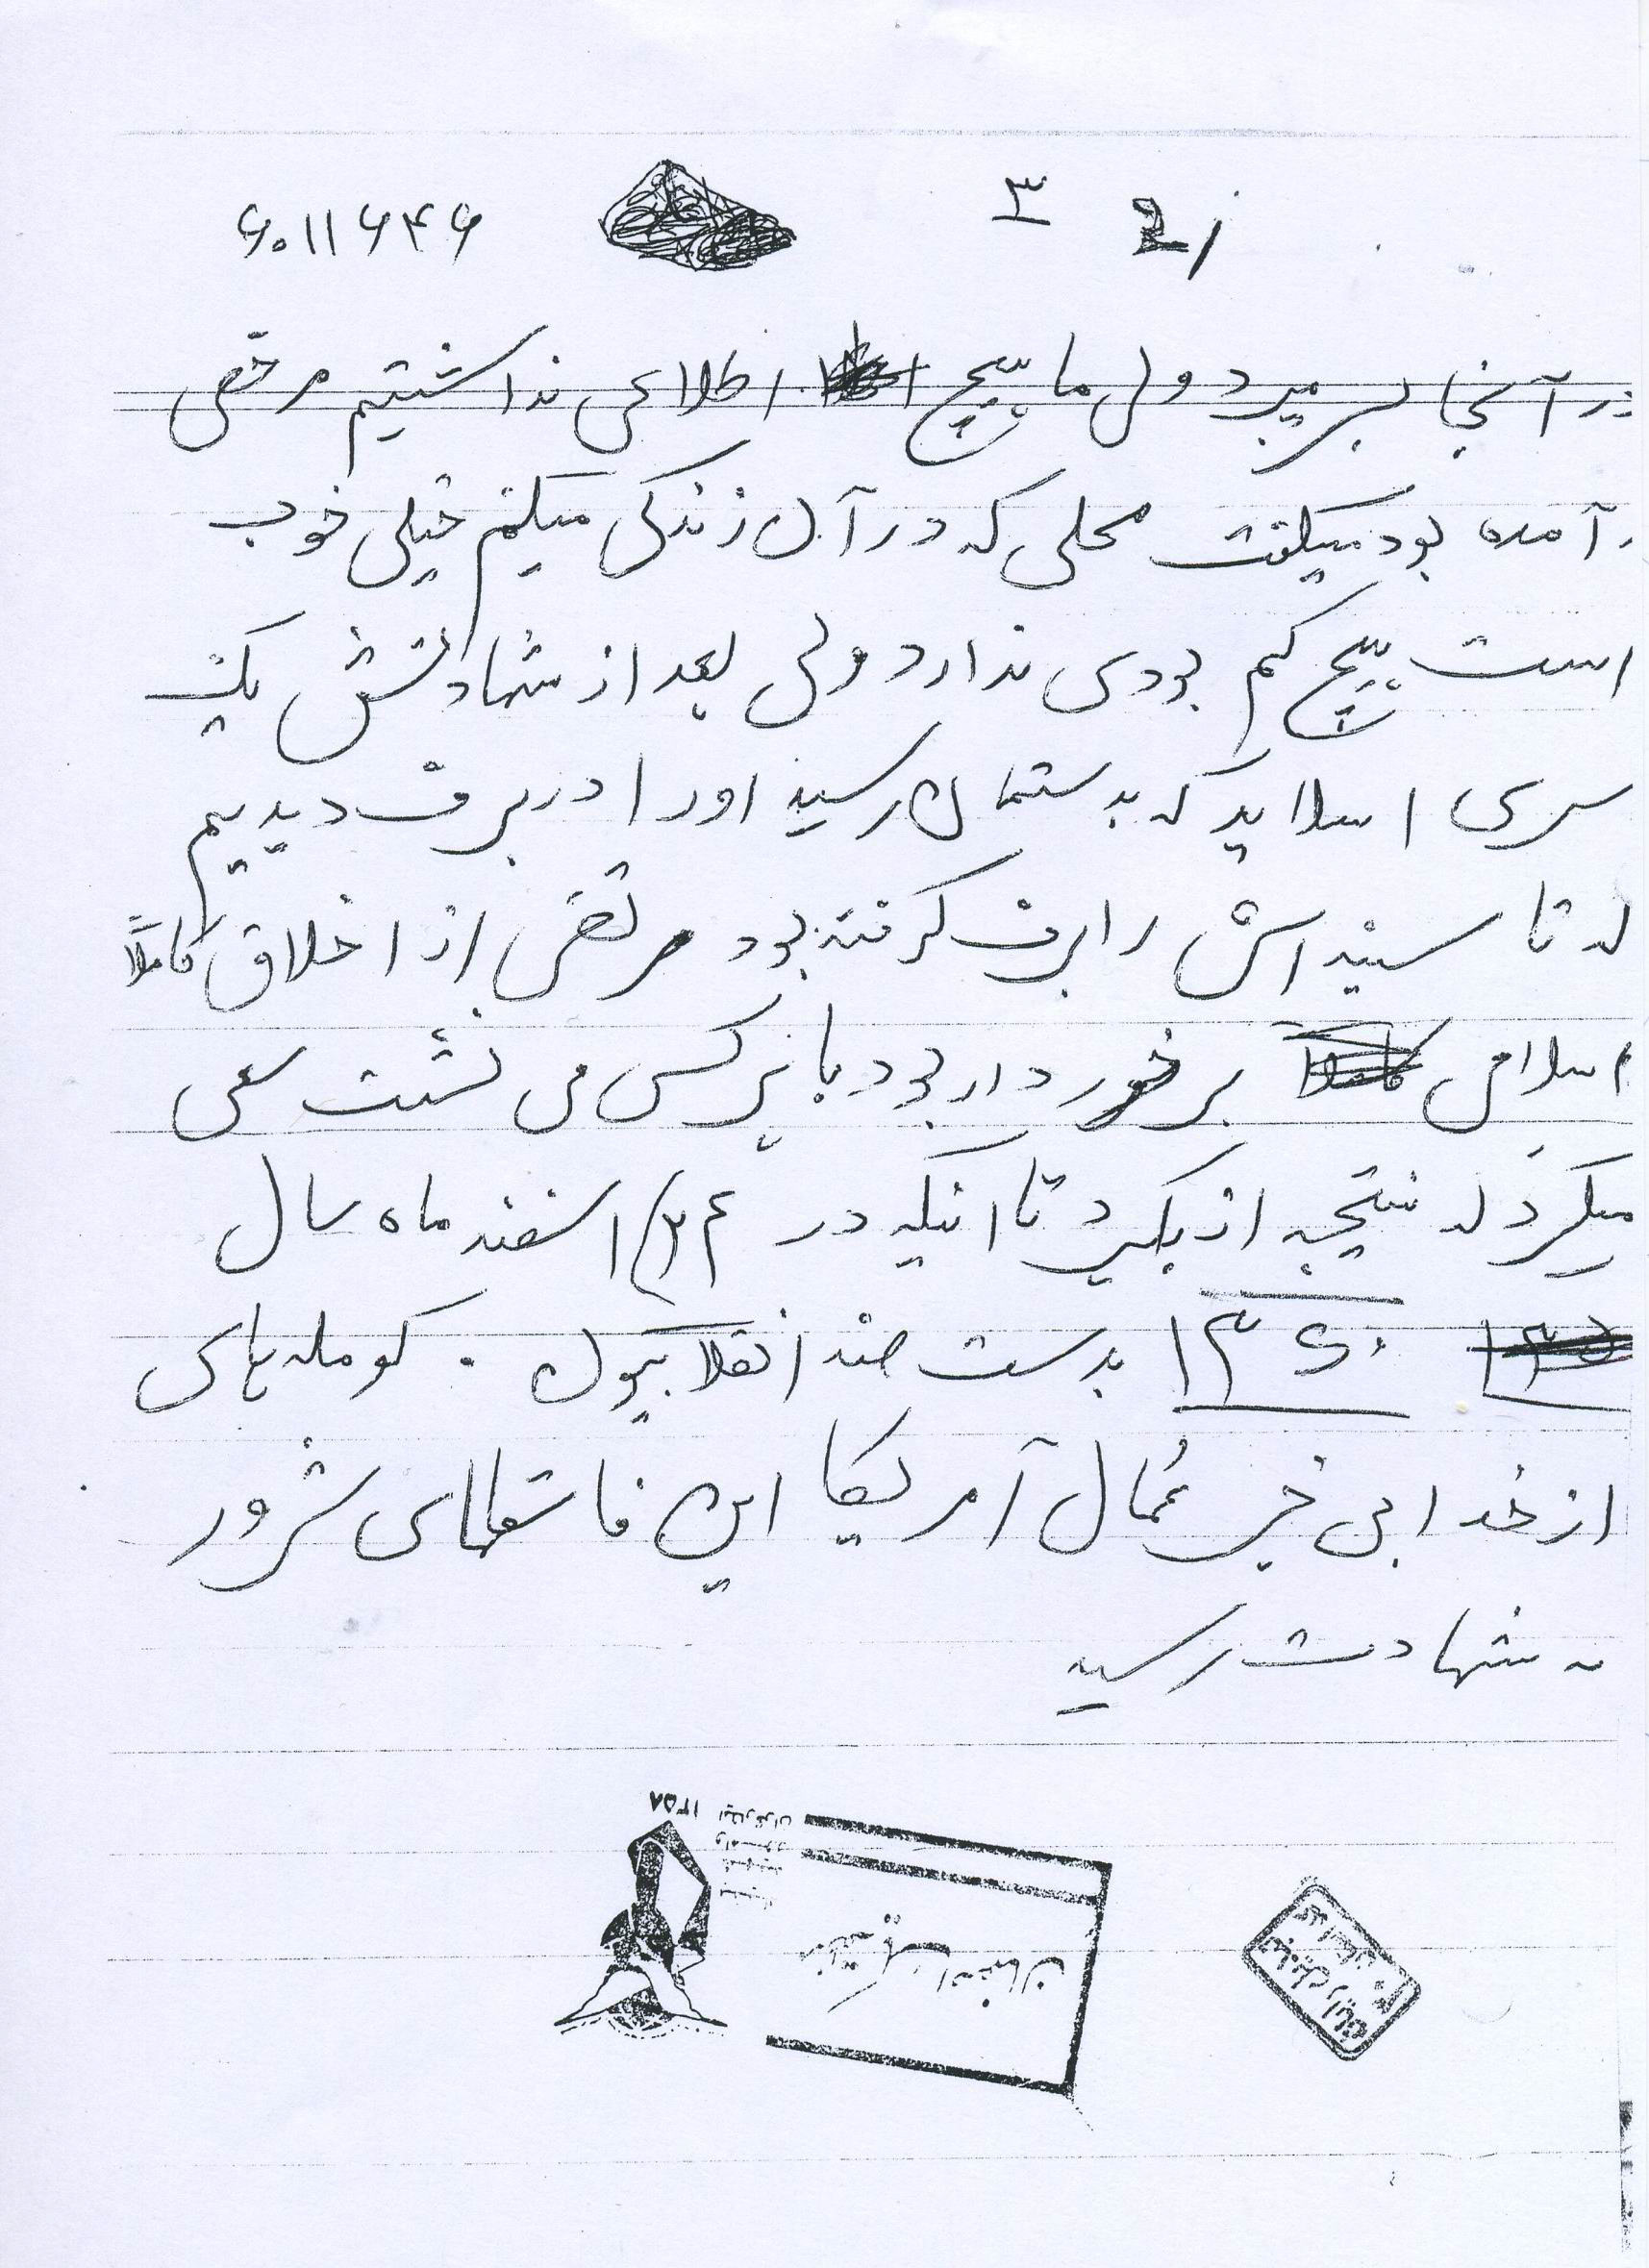 ۳
۶۰۱۱۶۴۶
در آنجا بسر میبرد ولی ما هیچ اطلاعی نداشتیم مرخصی
آمده بود میگفت محلی که در آن زندگی میکنم خیلی خوب
است هیچ کم بودی ندارد ولی بعد از شهادتش یک
سری اسلاید که بدستمان رسید او را در برف دیدیم
که تا سینه اش را برف گرفته بود مرتضی از اخلاق کاملاً
اسلامی برخوردار بود با هر کس می نشست سعی
میکرد که نتیجه از بگیرد تا اینکه در اسفند ماه سال
۱۳۶۰ بدست ضد انقلابیون . کومله های
از خدا بی خبر عُمال آمریکا این فاشتهای شرور
به شهادت رسید
۱۳۵۸